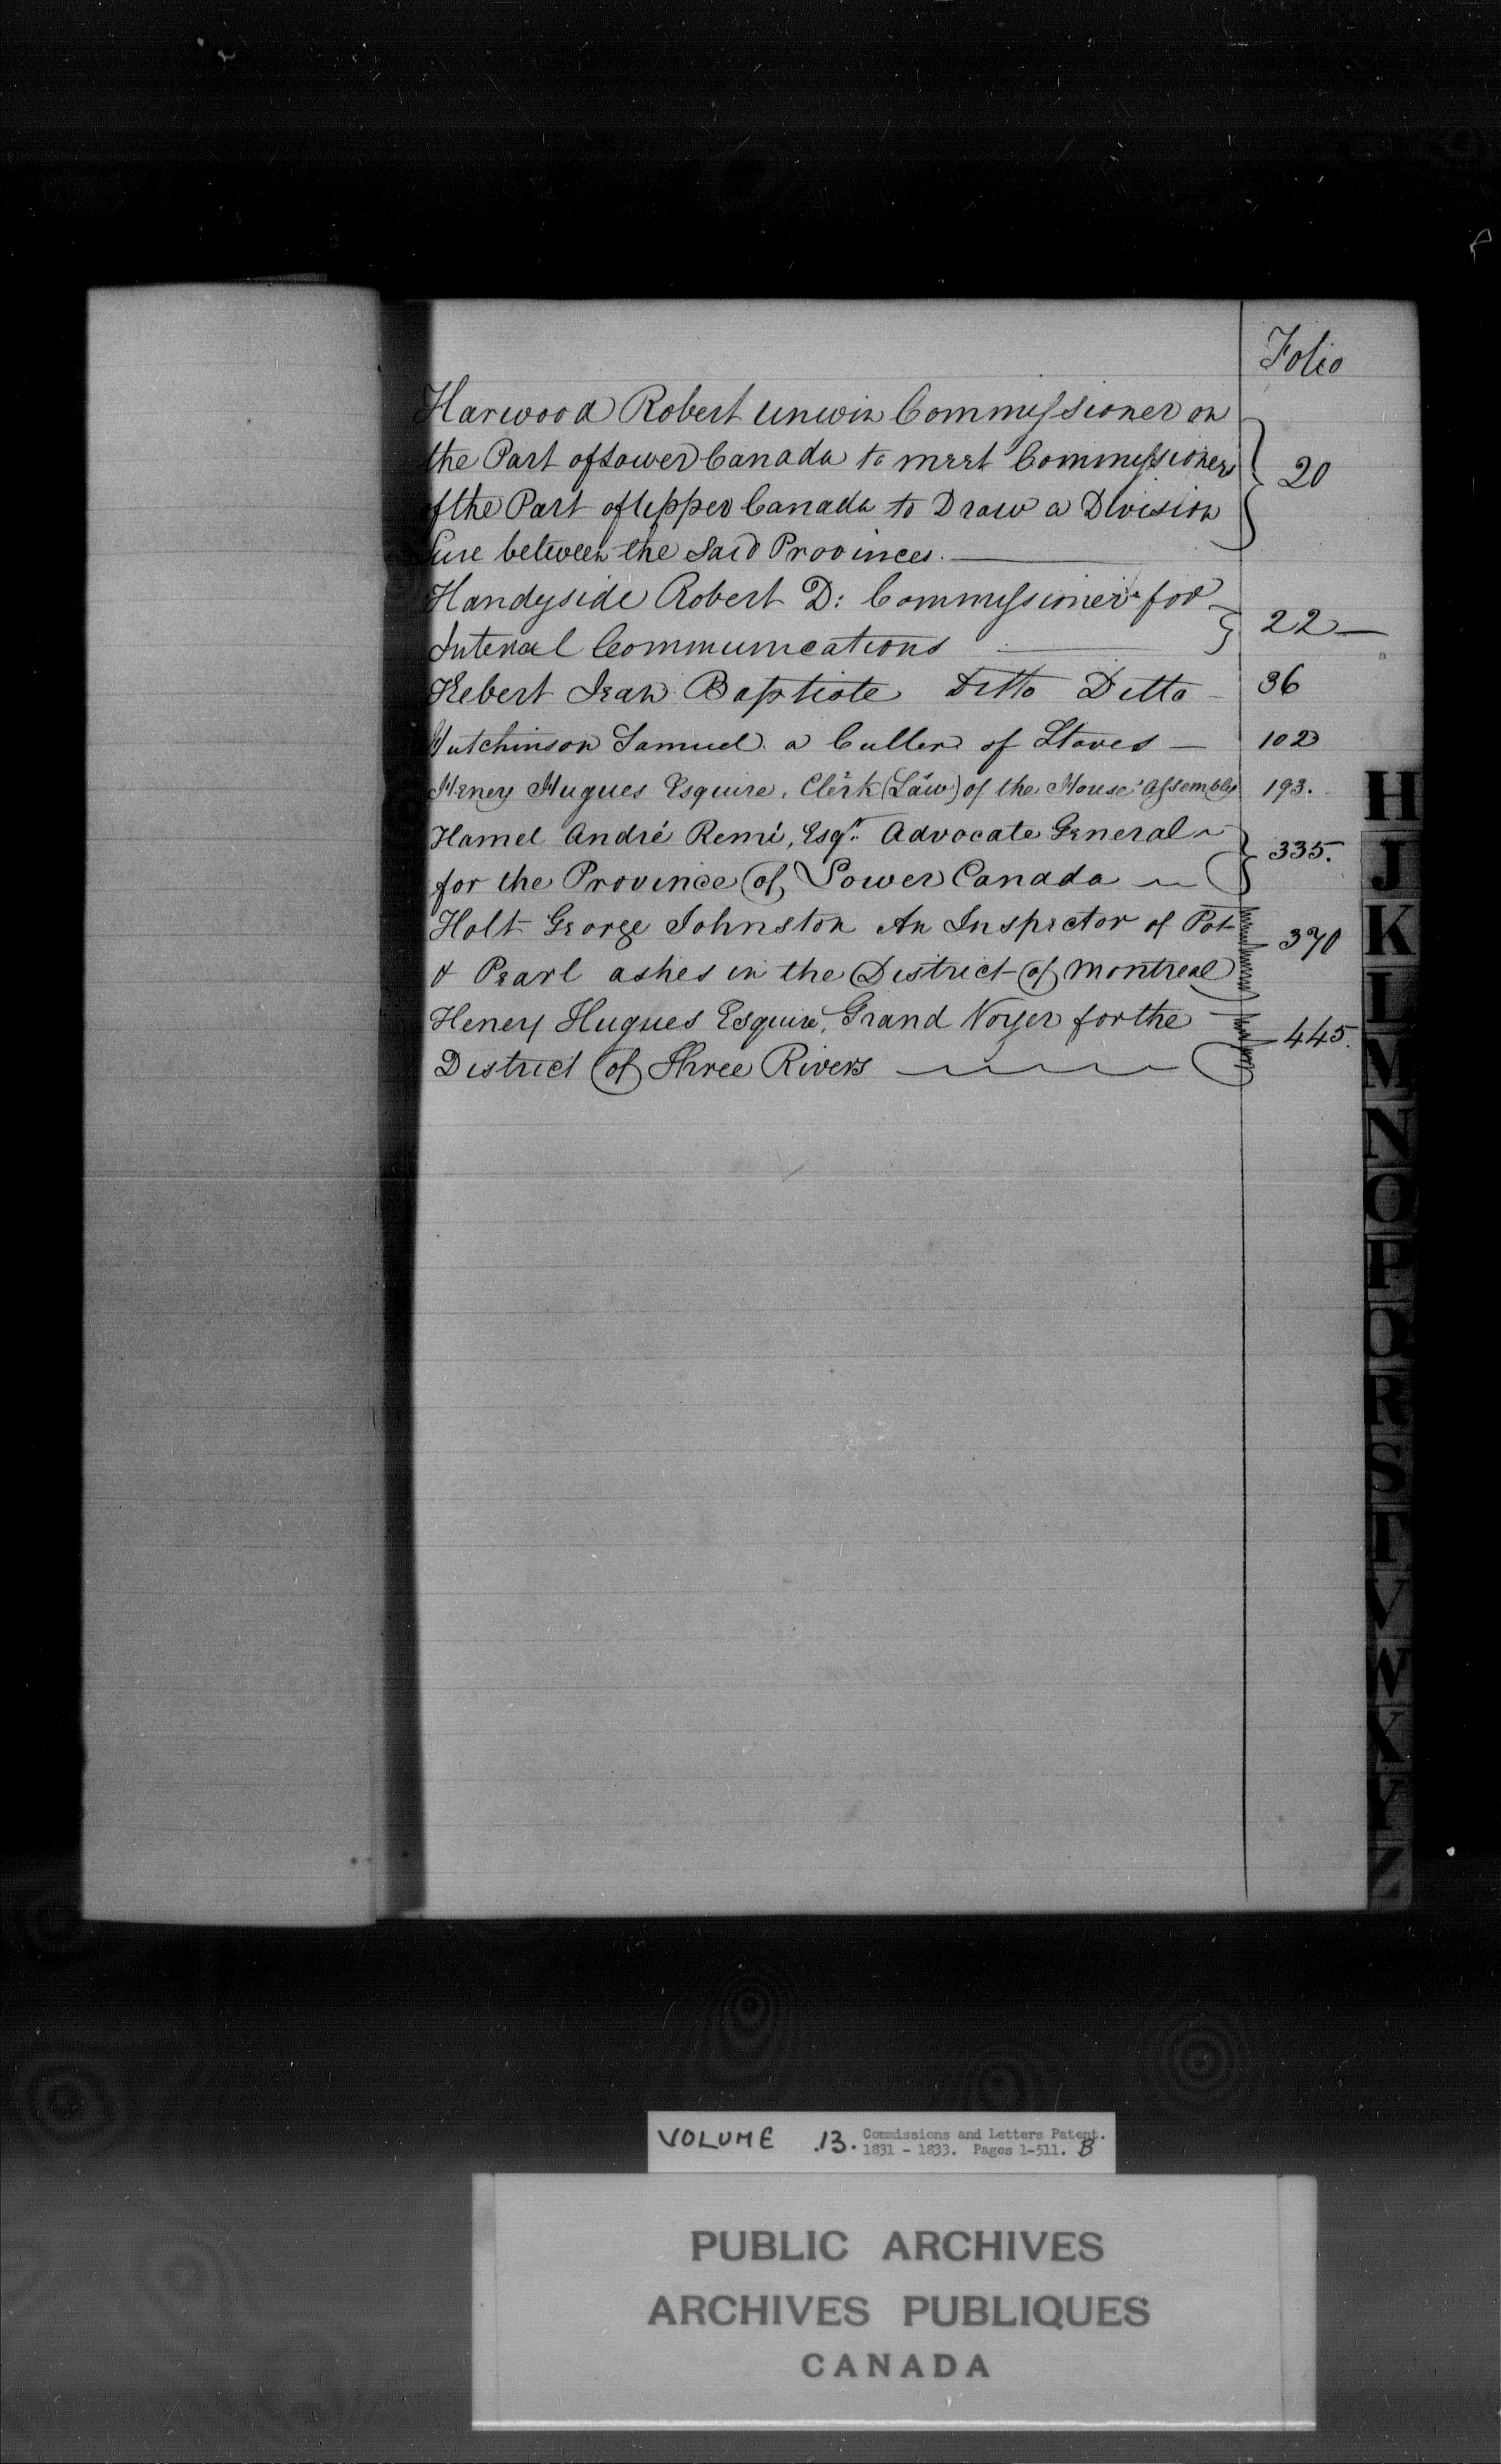 Folio
Harwood Robert Unwin Commissioner on
the Part of Lower Canada to meet Commissioners 20
of the Part of Upper Canada to Draw a Division
Line between the Said Provinces.
Handyside Robert D: Commissioner for
Internal Communications 22
Hebert Jean Baptiste Ditto Ditto 36
Hutchinson Samuel a Culler of Staves 102
Heney Hugues Esquire, Clerk (Law) of the House Assembly 193.
Hamel André Remi, Esqr. Advocate General
for the Province of Lower Canada 335.
Holt George Johnston An Inspector of Pot
& Pearl ashes in the District of Montreal 370
Heney Hugues Esquire, Grand Voyer for the
District of Three Rivers 445.
H
J
K
L
M
N
O
P
Q
R
S
T
V
W
X
Y
Z
VOLUME .13. Commissions and Letters Patent.
1831 - 1833. Pages 1-511. B
PUBLIC ARCHIVES
ARCHIVES PUBLIQUES
CANADA